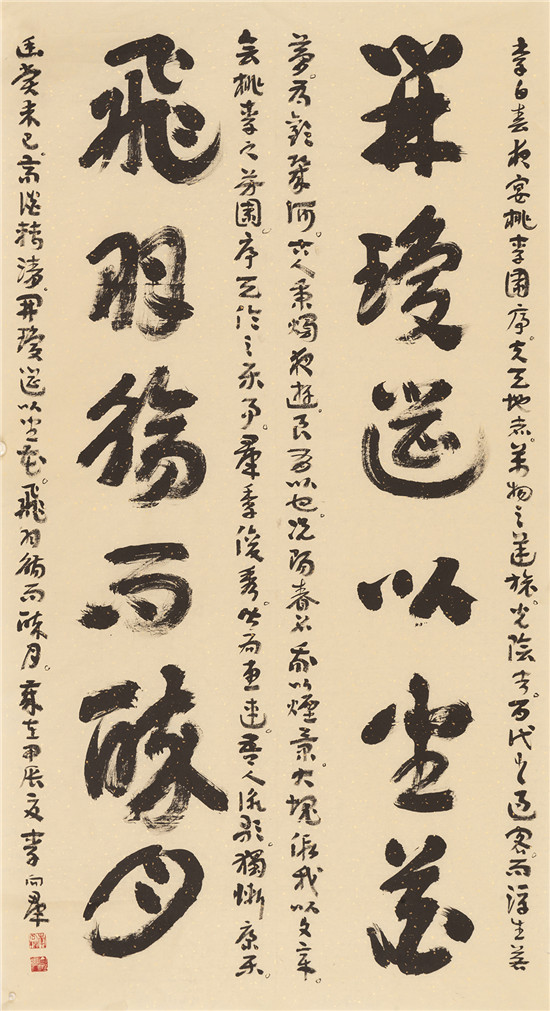 李白春夜宴桃李園序。夫天地者。萬物之逆旅。光陰者。百代之過客。而浮生若
開瓊筵以坐花
夢。為歡幾何。古人秉燭夜遊。良有以也。況陽春召我以煙景。大塊假我以文章。
會桃李之芳園。序天倫之樂事。羣季俊秀。皆為惠連。吾人詠歌。獨慚康樂。
飛羽觴而醉月
幽賞未已。高談轉清。開瓊筵以坐花。飛羽觴而醉月。歲在甲辰夏李向羣